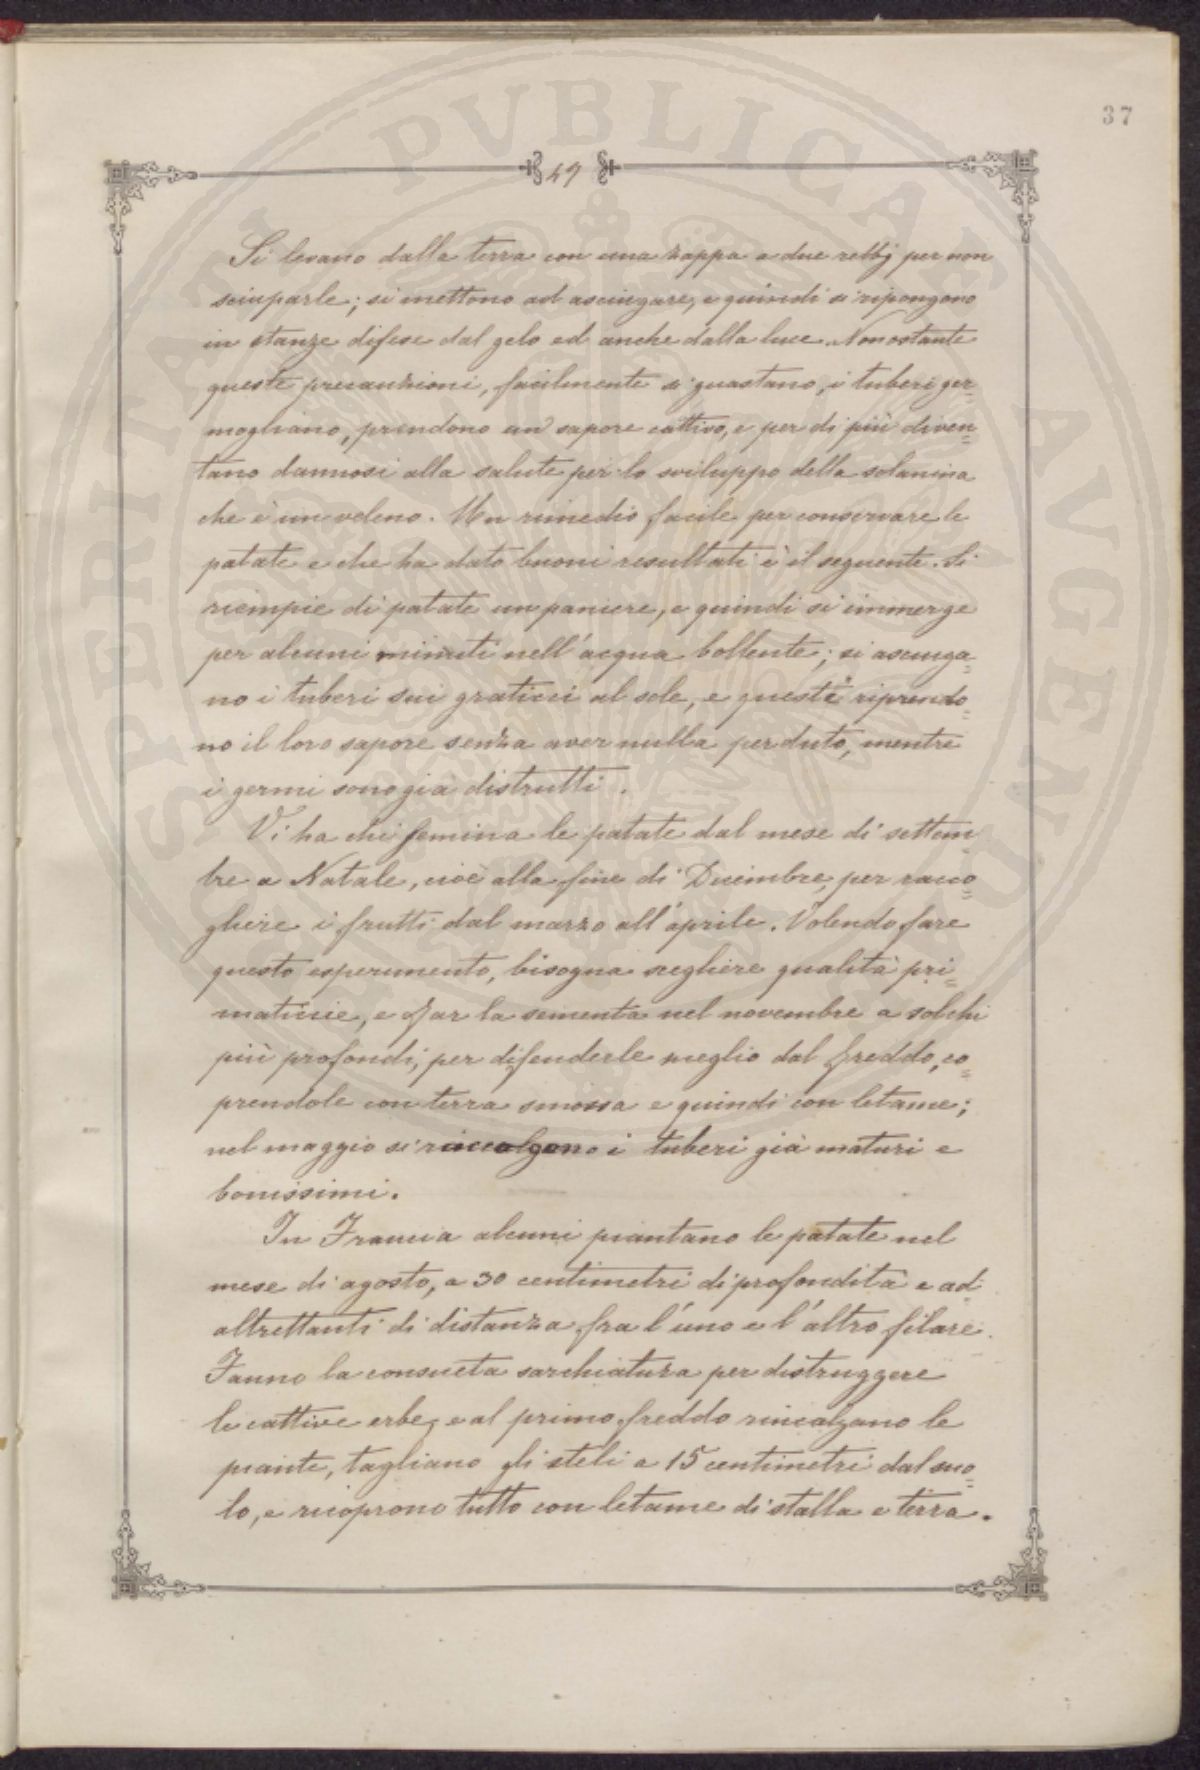 37
49
Si levano dalla terra con una zappa a due rebbj per non
sciuparle; si mettono ad asciugare, e quindi si ripongono
in stanze difese dal gelo ed anche dalla luce. Nonostante
queste precauzioni, facilmente si guastano, i tuberi ger=
mogliano, prendono un sapore cattivo, e per di più diven=
tano dannosi alla salute per lo sviluppo della solanina
che è un veleno. Un rimedio facile per conservare le
patate e che ha dato buoni resultati è il seguente. Si
riempie di patate un paniere, e quindi si immerge
per alcuni minuti nell'acqua bollente; si asciuga=
no i tuberi sui graticci al sole, e questi riprendo=
no il loro sapore senza aver nulla perduto, mentre
i germi sono già distrutti.
Vi ha chi semina le patate dal mese di settem=
bre a Natale, cioè alla fine di Dicembre, per racco=
gliere i frutti dal marzo all'aprile. Volendo fare
questo esperimento, bisogna scegliere qualità pri=
maticcie, e far la sementa nel novembre a solchi
più profondi, per difenderle meglio dal freddo, co=
prendole con terra smossa e quindi con letame;
nel maggio si raccolgono i tuberi già maturi e
bonissimi.
In Francia alcuni piantano le patate nel
mese di agosto, a 30 centimetri di profondità e ad
altrettanti di distanza fra l'uno e l'altro filare.
Fanno la consueta sarchiatura per distruggere
le cattive erbe, e al primo freddo rincalzano le
piante, tagliano gli steli a 15 centimetri dal suo=
lo, e ricoprono tutto con letame di stalla e terra.
PVBLICAE
SPERITATI
AVGENDAE